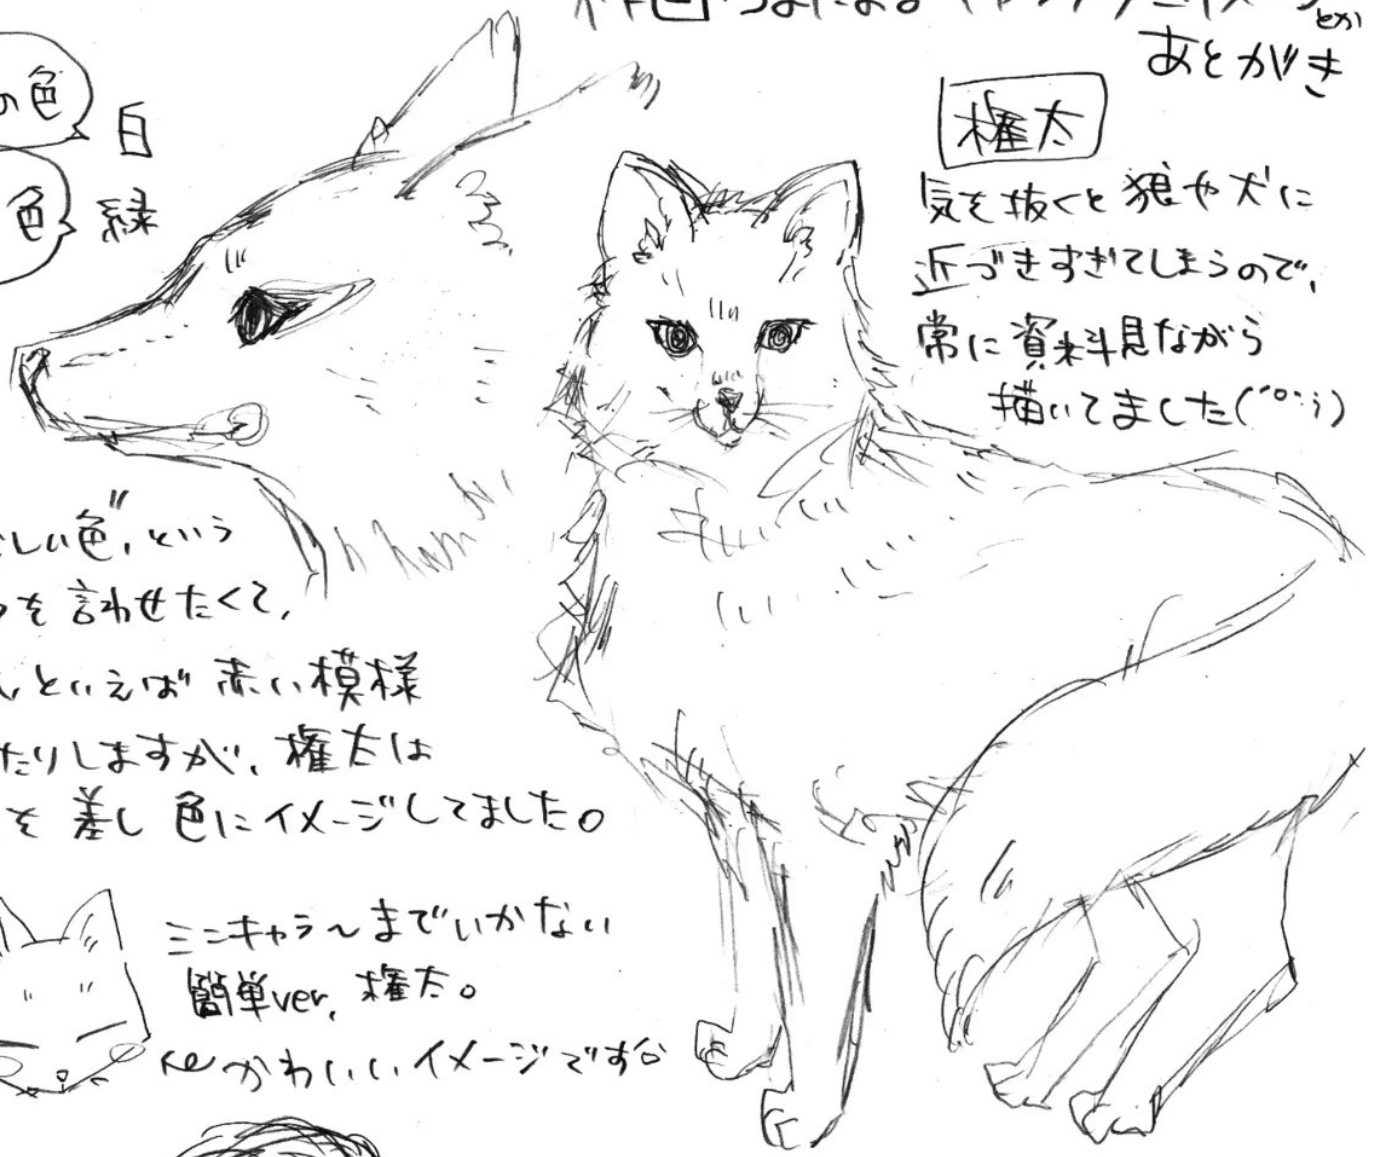 とか
あとがき
の色
白
色
緑
権太
気を抜くと狼や犬に
近づきすぎてしまうので、
常に資料見ながら
描いてました(´º∵;)
しい色"という
を言わせたくて、
といえば赤い模様
たりしますが、権太は
を差し色にイメージしてました。
ミニキャラ〜までいかない
簡単ver.権太。
かわいいイメージです